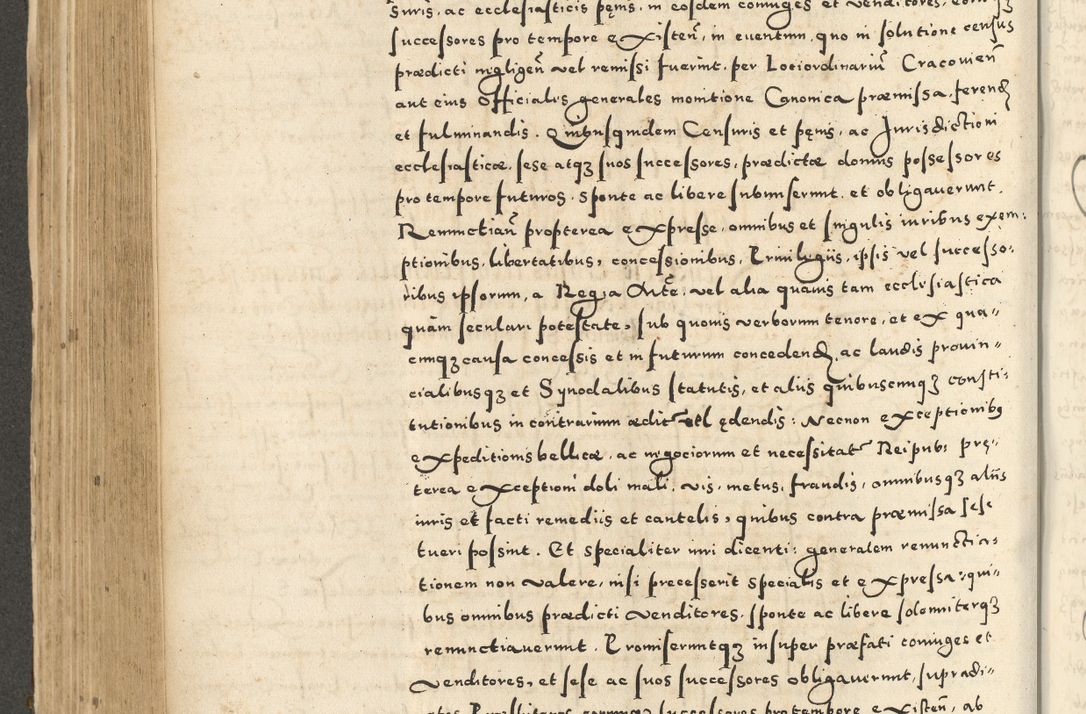 suris, ac ecclesiasticis pęnis, in eosdem coniuges et venditores, eorūqꝫ
successores pro tempore existeñ, in euentum, quo in solutione census
prædicti negligeñ vel remissi fuerint, per Lociordinariũ Cracovieñ
aut eius Officialis generales monitione Canonica præmissa, ferend
et fulminandis. Quibusquidem Censuris et pęnis, ac Jurisdictioni
ecclesiasticæ, sese atqꝫ suos successores, prædictæ domus possessores
pro tempore futuros, sponte ac libere subiunserunt, et obligauerunt.
Renunctiañ propterea expresse, omnibus et singulis iuribus exem:
ptionibus, libertatibus, concessionibus, Priuilegiis, ipsis vel successo:
ribus ipsorum, a Regia Mte, vel alia quauis tam ecclesiastica
quàm seculari potestate, sub quouis verborum tenore, et ex qua"
cunqꝫ causa concessis et in futurum concedend, ac laudis prouin"
cialibusqꝫ et Synodalibus statutis, et aliis quibuscunqꝫ consti:
tutionibus in contrarium ædit vel ędendis: Necnon exceptionibꝯ
expeditionis bellicæ, ac negociorum et necessitat Reipub: prę"
terea exceptioni doli mali, vis, metus, fraudis, omnibusqꝫ aliis
iuris et facti remediis et cautelis, quibus contra præmissa sese
tueri possint. Et specialiter iuri dicenti: generalem renunctia:
tionem non valere, nisi precesserit specialis et expressa: qui"
bus omnibus prædicti venditores, sponte ac libere solemniterqꝫ
renunctiauerunt. Promiseruntqꝫ insuper præfati coniuges et
venditores, et sese ac suos successores obligauerunt, supradi"
pro tempore existeñ, ab